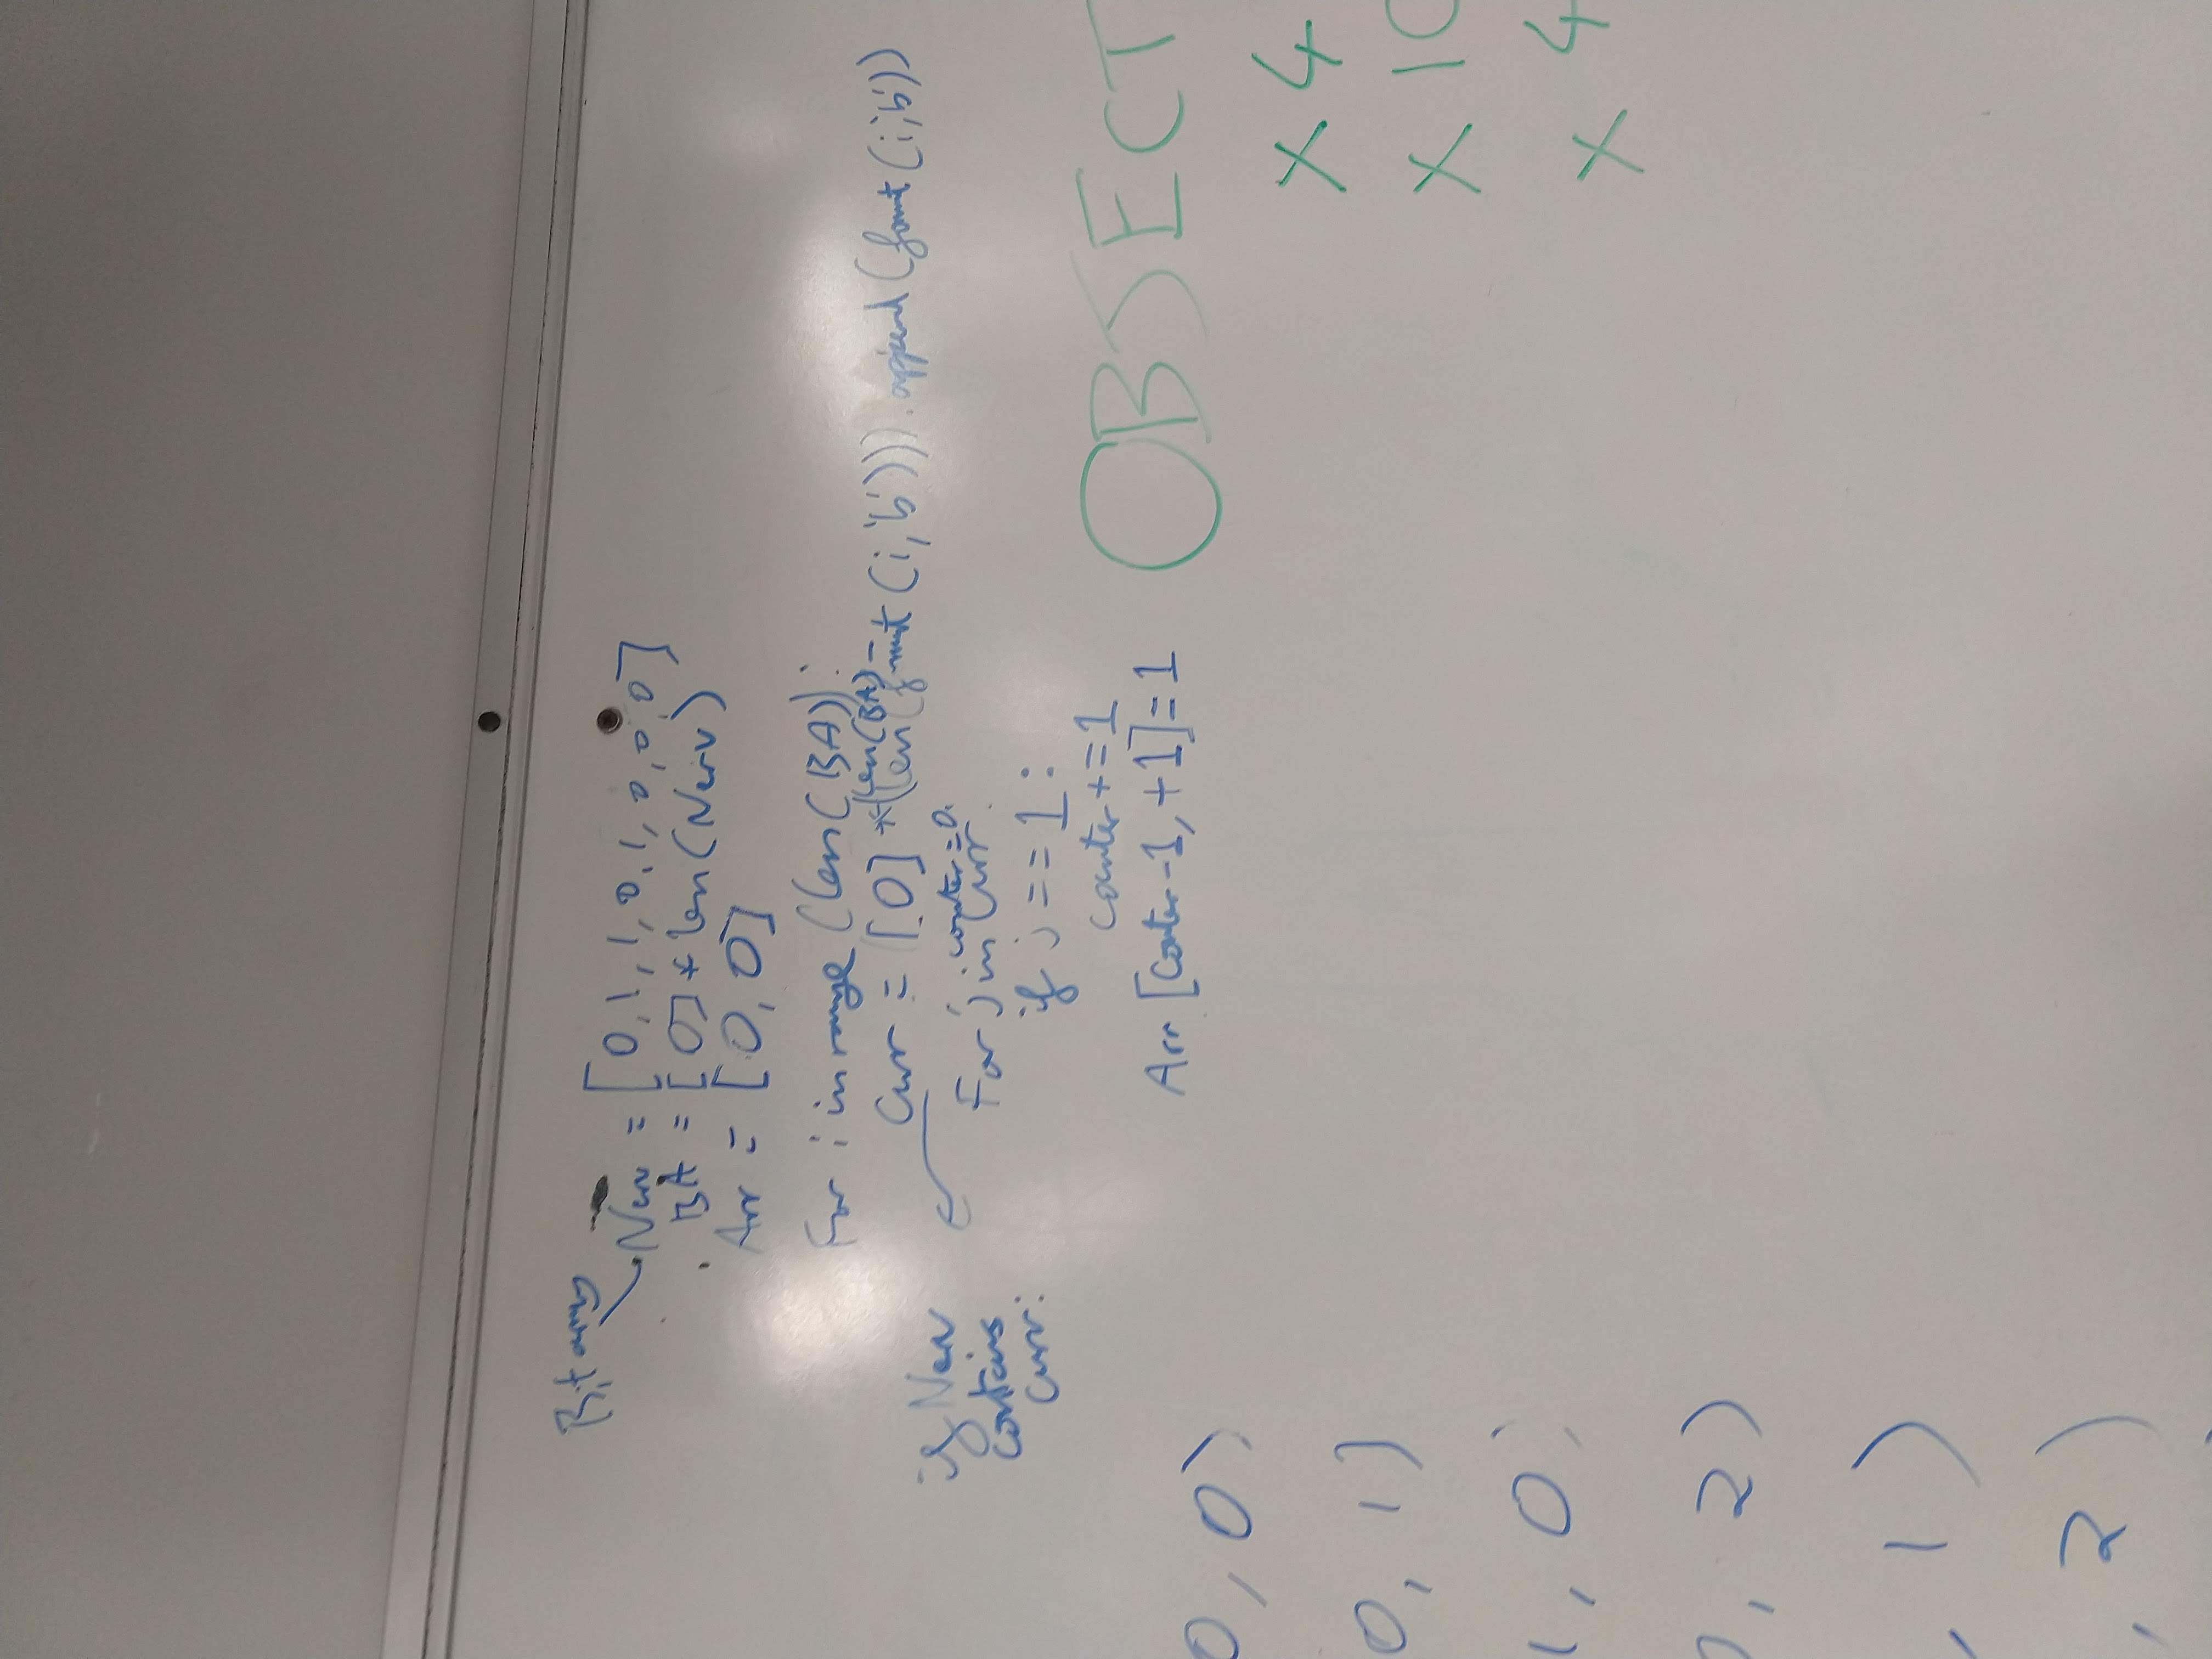 Bit array
Nerv = [0,1,1,0,1,0,0,0]
BA = [0]*len(Nerv)
Arr = [0,0]
For i in range (len(BA)):
Curr = [0]*(len(BA)-
(len(format(i,'b'))).append(format(i,'b'))
if Nerv
contains
Curr:
counter=0.
For j in Curr:
if j == 1:
counter+=1
Arr [counter-1,+1]=1
OBJECT
x 4
x 10
x 4
0, 0)
0, 1)
1, 0)
, 2)
, 1)
, 2)